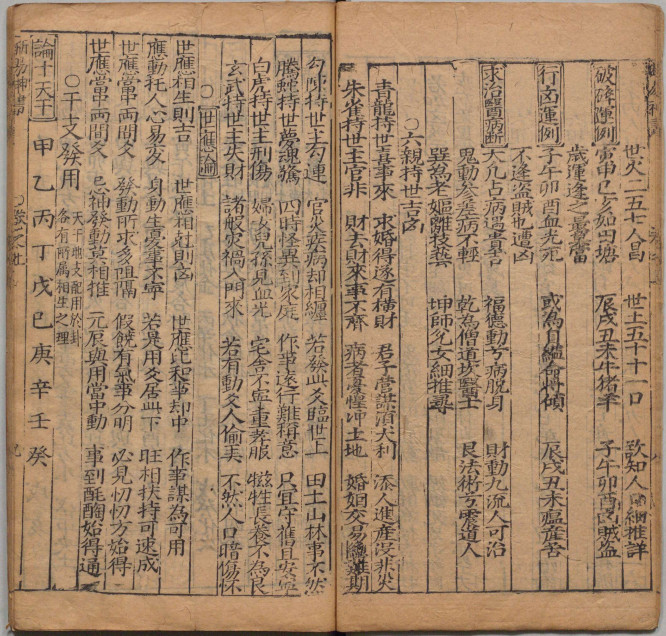 世火二五七人昌　世土五十十一口　欲知人口細推詳
破碎運例　寅申巳亥如田塘　辰戌丑未牛猪羊　子午卯酉因賊盜
歲運逢之量當
行凶運例　子午卯酉血光死　或為自縊命將傾　辰戌丑未瘟癀害
不逢盜賊也遭凶
求治醫病斷　大凡占病遇貴吉　福德動兮病脫身　財動九流人可治
鬼動參差病不輕　乾為僧道坎醫士　艮法術兮震道人
巽為老嫗離技藝　坤師兌女細推尋
○六親持世吉凶
青龍持世喜事來　求婚得遂有橫財　君子營謀須大利　添人進產沒非災
朱雀持世主官非　財去財來事不齊　病者憂惶坤土地　婚姻交易
勾陳持世主勾連　官災疾病却相纏　若發此爻臨世上　田土山林事不然
騰蛇持世夢魂驚　四時怪異到家庭　作事遠行難稱意　只宜守舊且安
白虎持世主刑傷　婦女兒孫見血光　宅舍不寧重孝服　犧牲長養不為良
玄武持世主失財　諸般災禍入門來　若有動爻人偷去　不然人口暗傷怀
○世應論
世應相生則吉　世應相尅則凶　世應比和事却中　作事謀為可用
應動托人心易變　身動生憂事不寧　若是用爻居此下　旺相扶持可速成
世應當中兩間爻　發動所求多阻隔　假饒有氣事分明　必見忉忉方始得
世應當中兩間爻　忌神發動莫相推　元辰與用當中動　事到酕醄始得通
○干支發用　天干地支配用於卦
各有所屬相生之理
論十天干　甲乙丙丁戊己庚辛壬癸